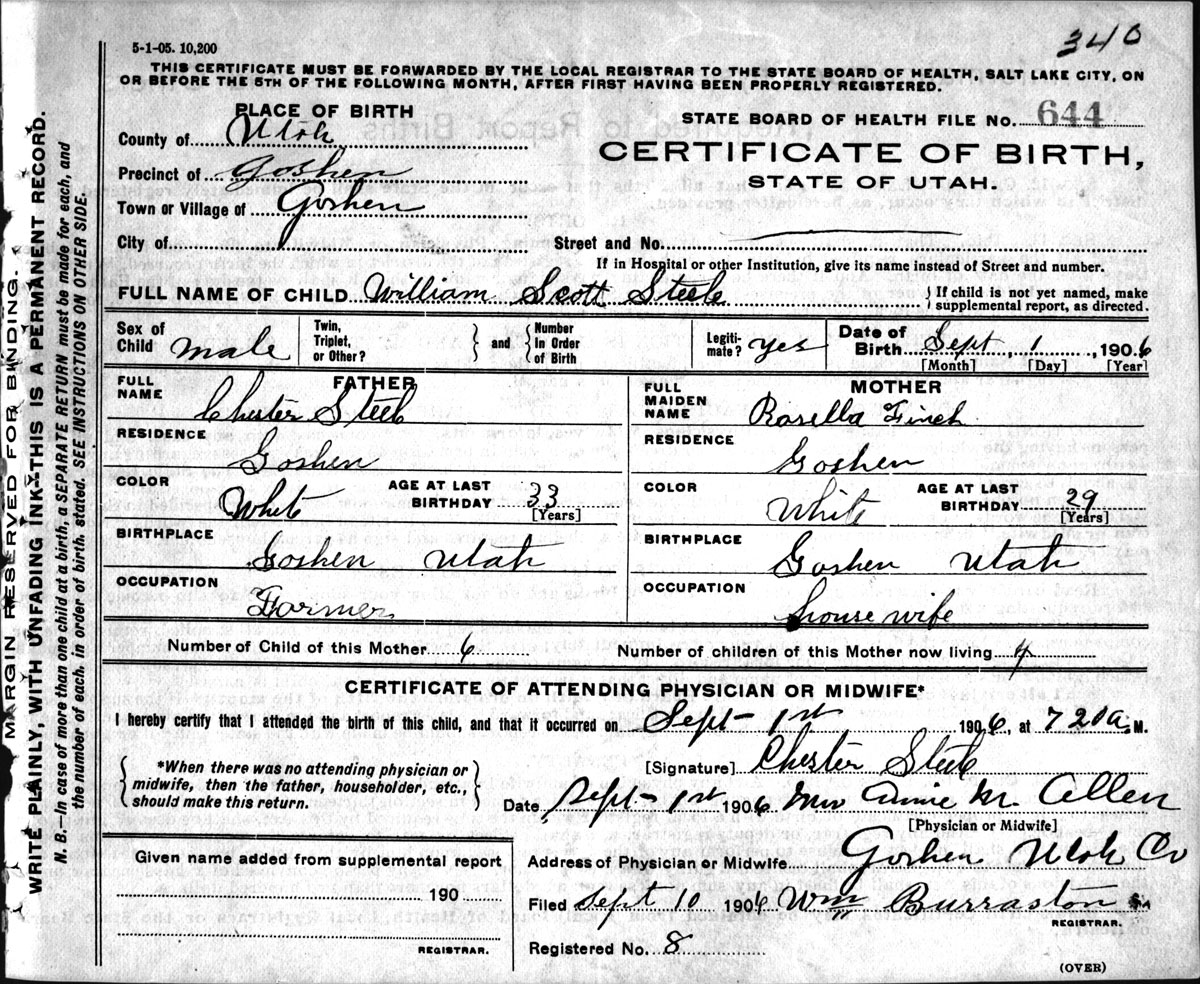 340
5-1-05. 10,200
THIS CERTIFICATE MUST BE FORWARDED BY THE LOCAL REGISTRAR TO THE STATE BOARD OF HEALTH, SALT LAKE CITY, ON
OR BEFORE THE 5TH OF THE FOLLOWING MONTH, AFTER FIRST HAVING BEEN PROPERLY REGISTERED.
PLACE OF BIRTH
County of Utah
Precinct of Goshen
Town or Village of Goshen
City of
STATE BOARD OF HEALTH FILE NO. 644
CERTIFICATE OF BIRTH,
STATE OF UTAH.
Street and No.
If in Hospital or other Institution, give its name instead of Street and number.
FULL NAME OF CHILD William Scott Steele
{ If child is not yet named, make
supplemental report, as directed.
Sex of Child male
Twin, Triplet, or Other? } and { Number in Order of Birth
Legiti-mate? yes
Date of Birth Sept, 1, 1906
[Month] [Day] [Year]
FATHER
FULL NAME Chester Steele
RESIDENCE Goshen
COLOR White AGE AT LAST BIRTHDAY 33
[Years]
BIRTHPLACE Goshen Utah
OCCUPATION Farmer
MOTHER
FULL MAIDEN NAME Rosella Finch
RESIDENCE Goshen
COLOR White AGE AT LAST BIRTHDAY 29
[Years]
BIRTHPLACE Goshen Utah
OCCUPATION house wife
Number of Child of this Mother 6 Number of children of this Mother now living 4
CERTIFICATE OF ATTENDING PHYSICIAN OR MIDWIFE*
I hereby certify that I attended the birth of this child, and that it occurred on Sept- 1st 1906, at 720a.M.
{ *When there was no attending physician or
midwife, then the father, householder, etc.,
should make this return. }
[Signature] Chester Steele
Date Sept- 1st 1906. Mrs Annie M. Allen
[Physician or Midwife]
Given name added from supplemental report
190
REGISTRAR.
Address of Physician or Midwife Goshen Utah Co
Filed Sept 10 1906 Wm Burraston
REGISTRAR.
Registered No. 8
(OVER)
MARGIN RESERVED FOR BINDING.
WRITE PLAINLY, WITH UNFADING INK--THIS IS A PERMANENT RECORD.
N. B.—In case of more than one child at a birth, a SEPARATE RETURN must be made for each, and
the number of each, in order of birth, stated. SEE INSTRUCTIONS ON OTHER SIDE.